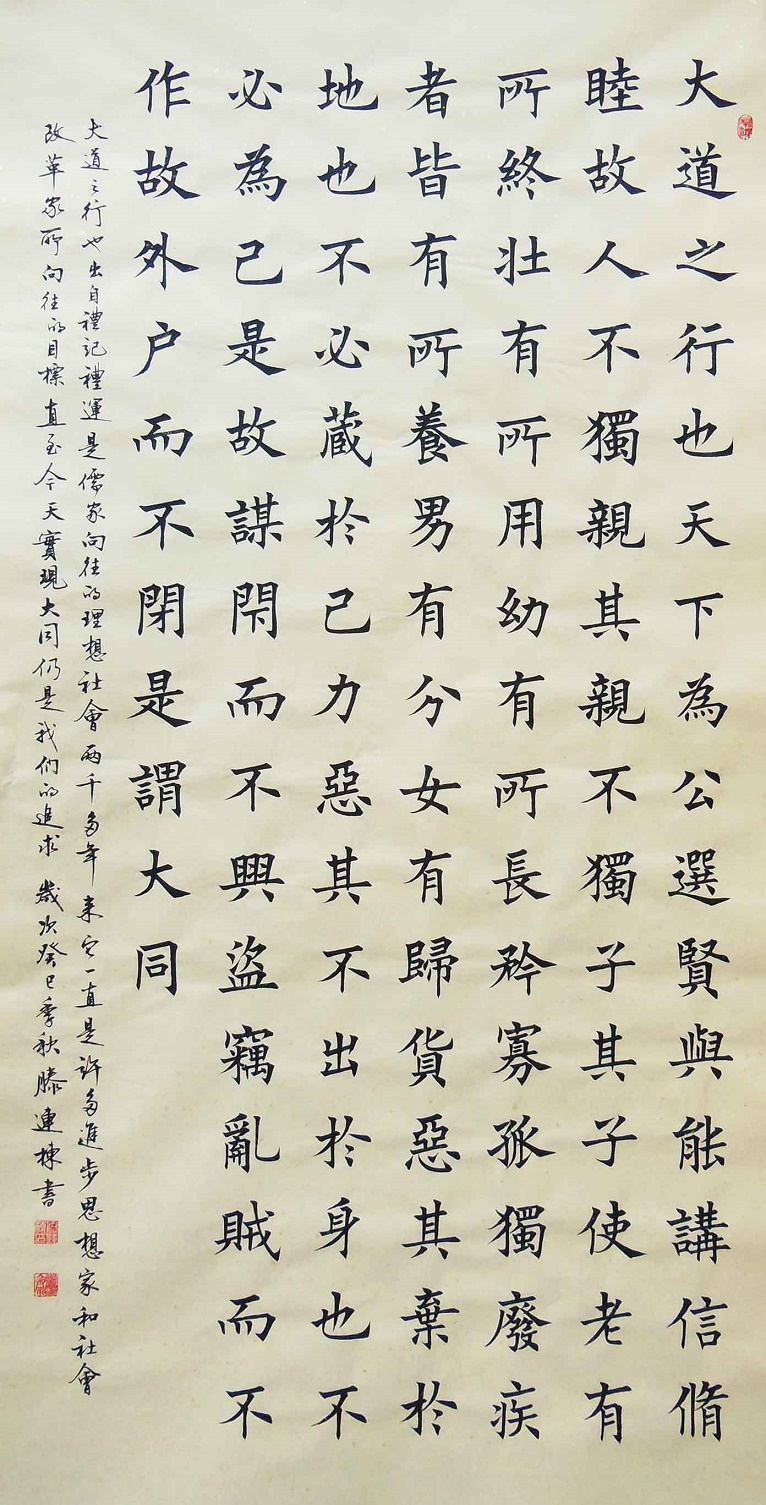 大道之行也天下為公選賢與能講信脩
睦故人不獨親其親不獨子其子使老有
所終壯有所用幼有所長矜寡孤獨廢疾
者皆有所養男有分女有歸貨惡其棄於
地也不必藏於己力惡其不出於身也不
必為己是故謀閇而不興盜竊亂賊而不
作故外户而不閉是謂大同
大道之行也出自禮記禮運是儒家向往的理想社會兩千多年来它一直是許多進步思想家和社會
改革家所向往的目標直至今天實現大同仍是我们的追求 歲次癸巳季秋滕連棟書